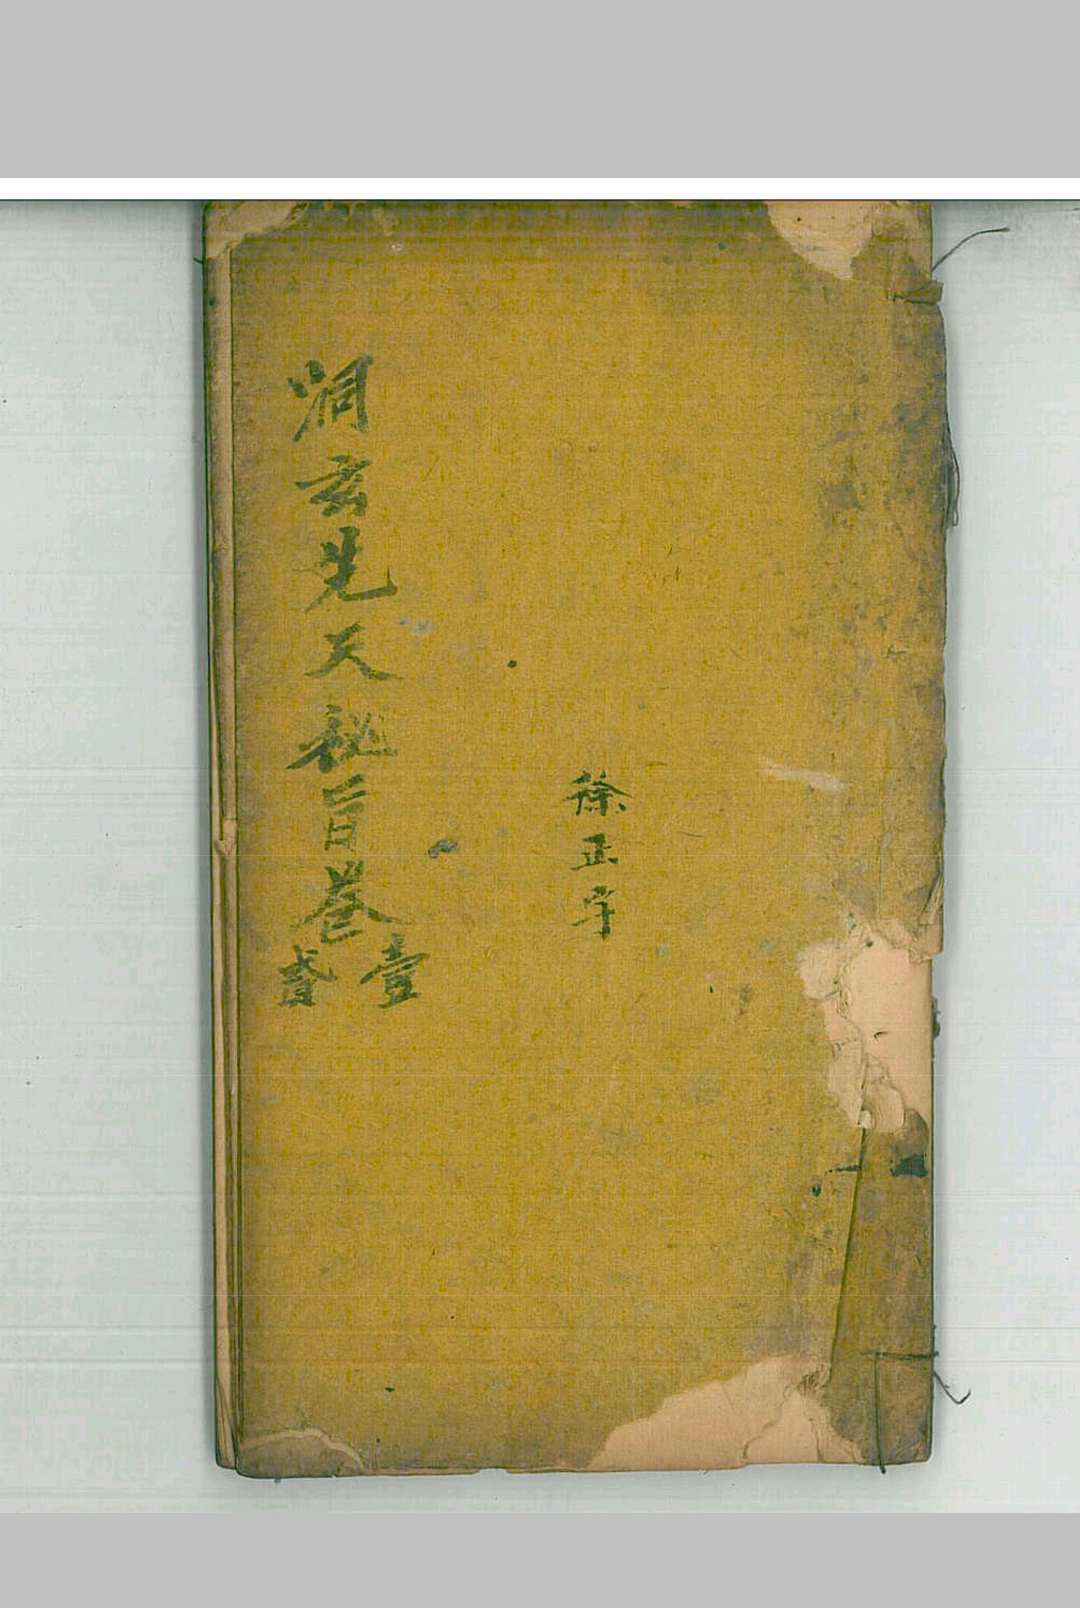 徐正字
洞玄先天秘旨卷壹貳